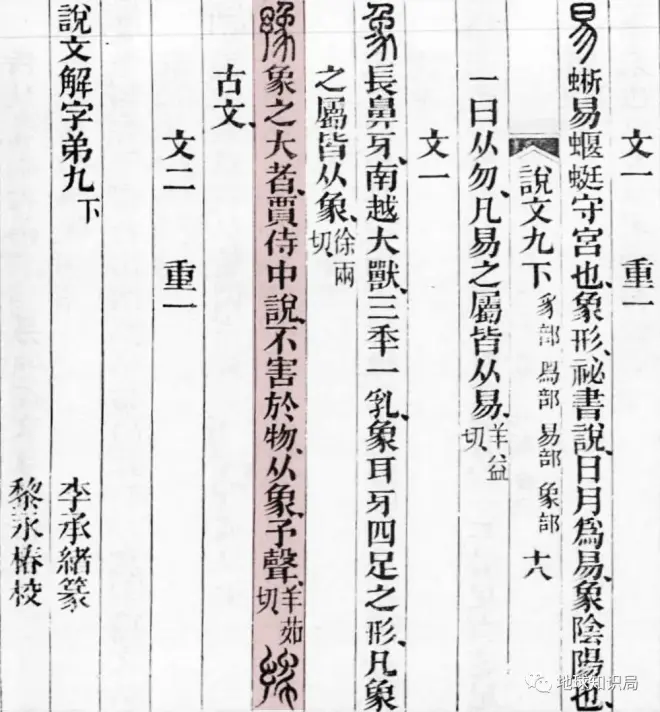 文一 重一
易 蜥易蝘蜓守宮也、象形、祕書說、日月爲易、象陰陽也、
說文九下 豸部 𤉡部 易部 象部 十八
一曰从勿、凡易之屬皆从易、羊益切
文一
象 長鼻牙、南越大獸、三秊一乳、象耳牙四足之形、凡象
之屬皆从象、徐兩切
豫 象之大者、賈侍中說、不害於物、从象、予聲、羊茹切
古文、
文二 重一
說文解字弟九下 李承緒篆
黎永椿校
地球知识局